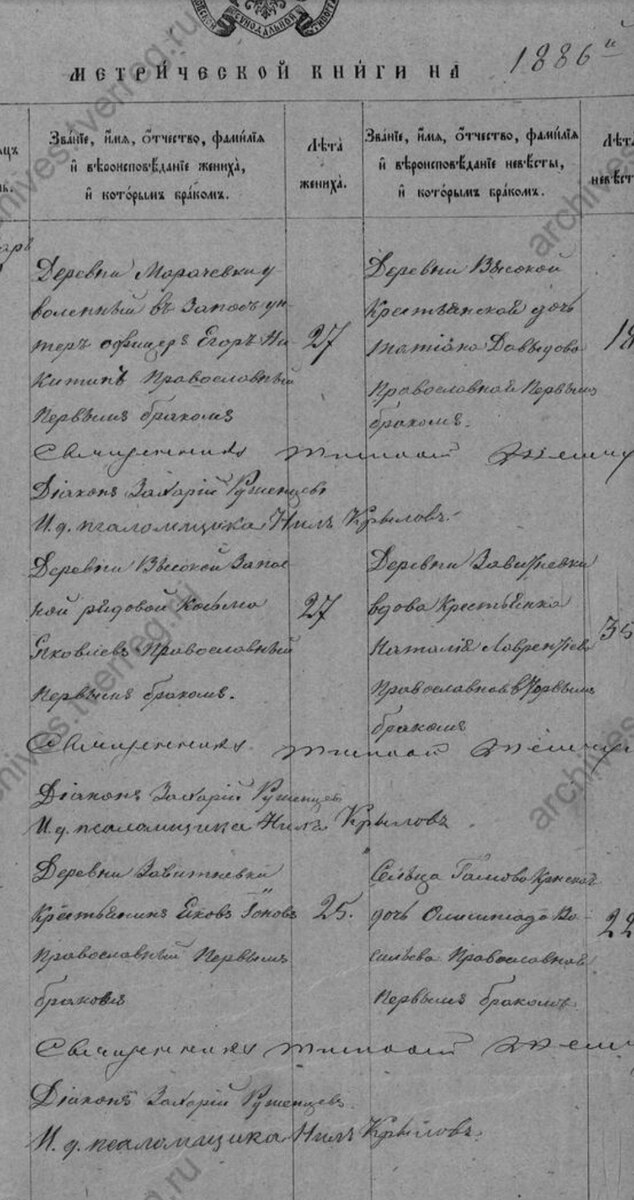 МЕТРИ́ЧЕСКОЙ КНИ́ГИ НА 1886й
Зва́нїе, и́мѧ, ѻ҆́тчество, фами́лїѧ и҆ вѣроисповѣ́данїе жениха̀, и҆ кото́рымъ бра́комъ.
Лѣ́та жениха̀.
Зва́нїе, и́мѧ, ѻ҆́тчество, фами́лїѧ и҆ вѣроисповѣ́данїе невѣ́сты, и҆ кото́рымъ бра́комъ.
Лѣ́та
Деревни Марачевки у-
воленный въ Запасъ ун-
теръ офицеръ Егоръ Ни-
китинъ Православный
первымъ бракомъ
27
Деревни Высокой
Крестьянской дочь
Татіана Давыдова
Православной первымъ
бракомъ.
18
Священникъ
Діаконъ Захарій Руженцевъ
И. д. псаломщика Нилъ Крыловъ.
Деревни Высокой Запас-
ной рядовой Косьма
Яковлевъ Православный
первымъ бракомъ.
27
Деревни
вдова Крестьянка
Наталія Лаврентіева
Православной вторымъ
бракомъ
35
Священникъ
Діаконъ Захарій Руженцевъ
И. д. псаломщика Нилъ Крыловъ
Деревни
Крестьянинъ Яковъ Іоновъ
Православный первымъ
бракомъ
25.
Сельца
дочь Олимпіада Ва-
сильева Православной
первымъ бракомъ
22
Священникъ
Діаконъ Захарій Руженцевъ.
И. д. псаломщика Нилъ Крыловъ.
archives.tverreg.ru